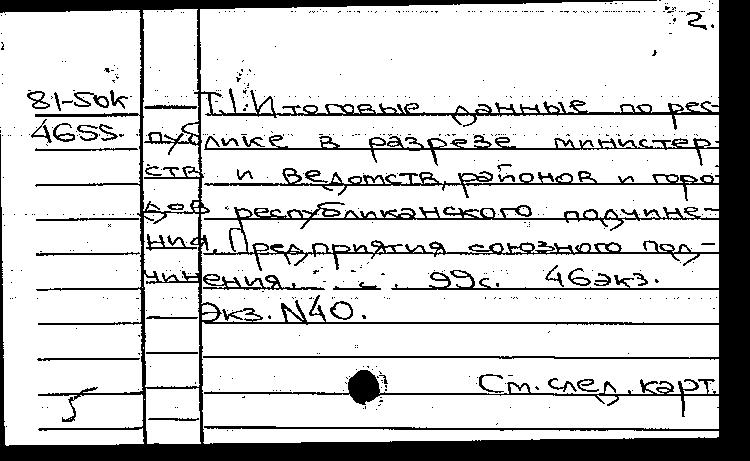 2.
81-50к Т.1. Итоговые данные по рес-
4655. публике в разрезе министер-
ств и ведомств, районов и горо-
дов республиканского подчине-
ния. Предприятия союзного под-
чинения. . . . 99с. 46экз.
Экз. N40.
См. след. карт.
5